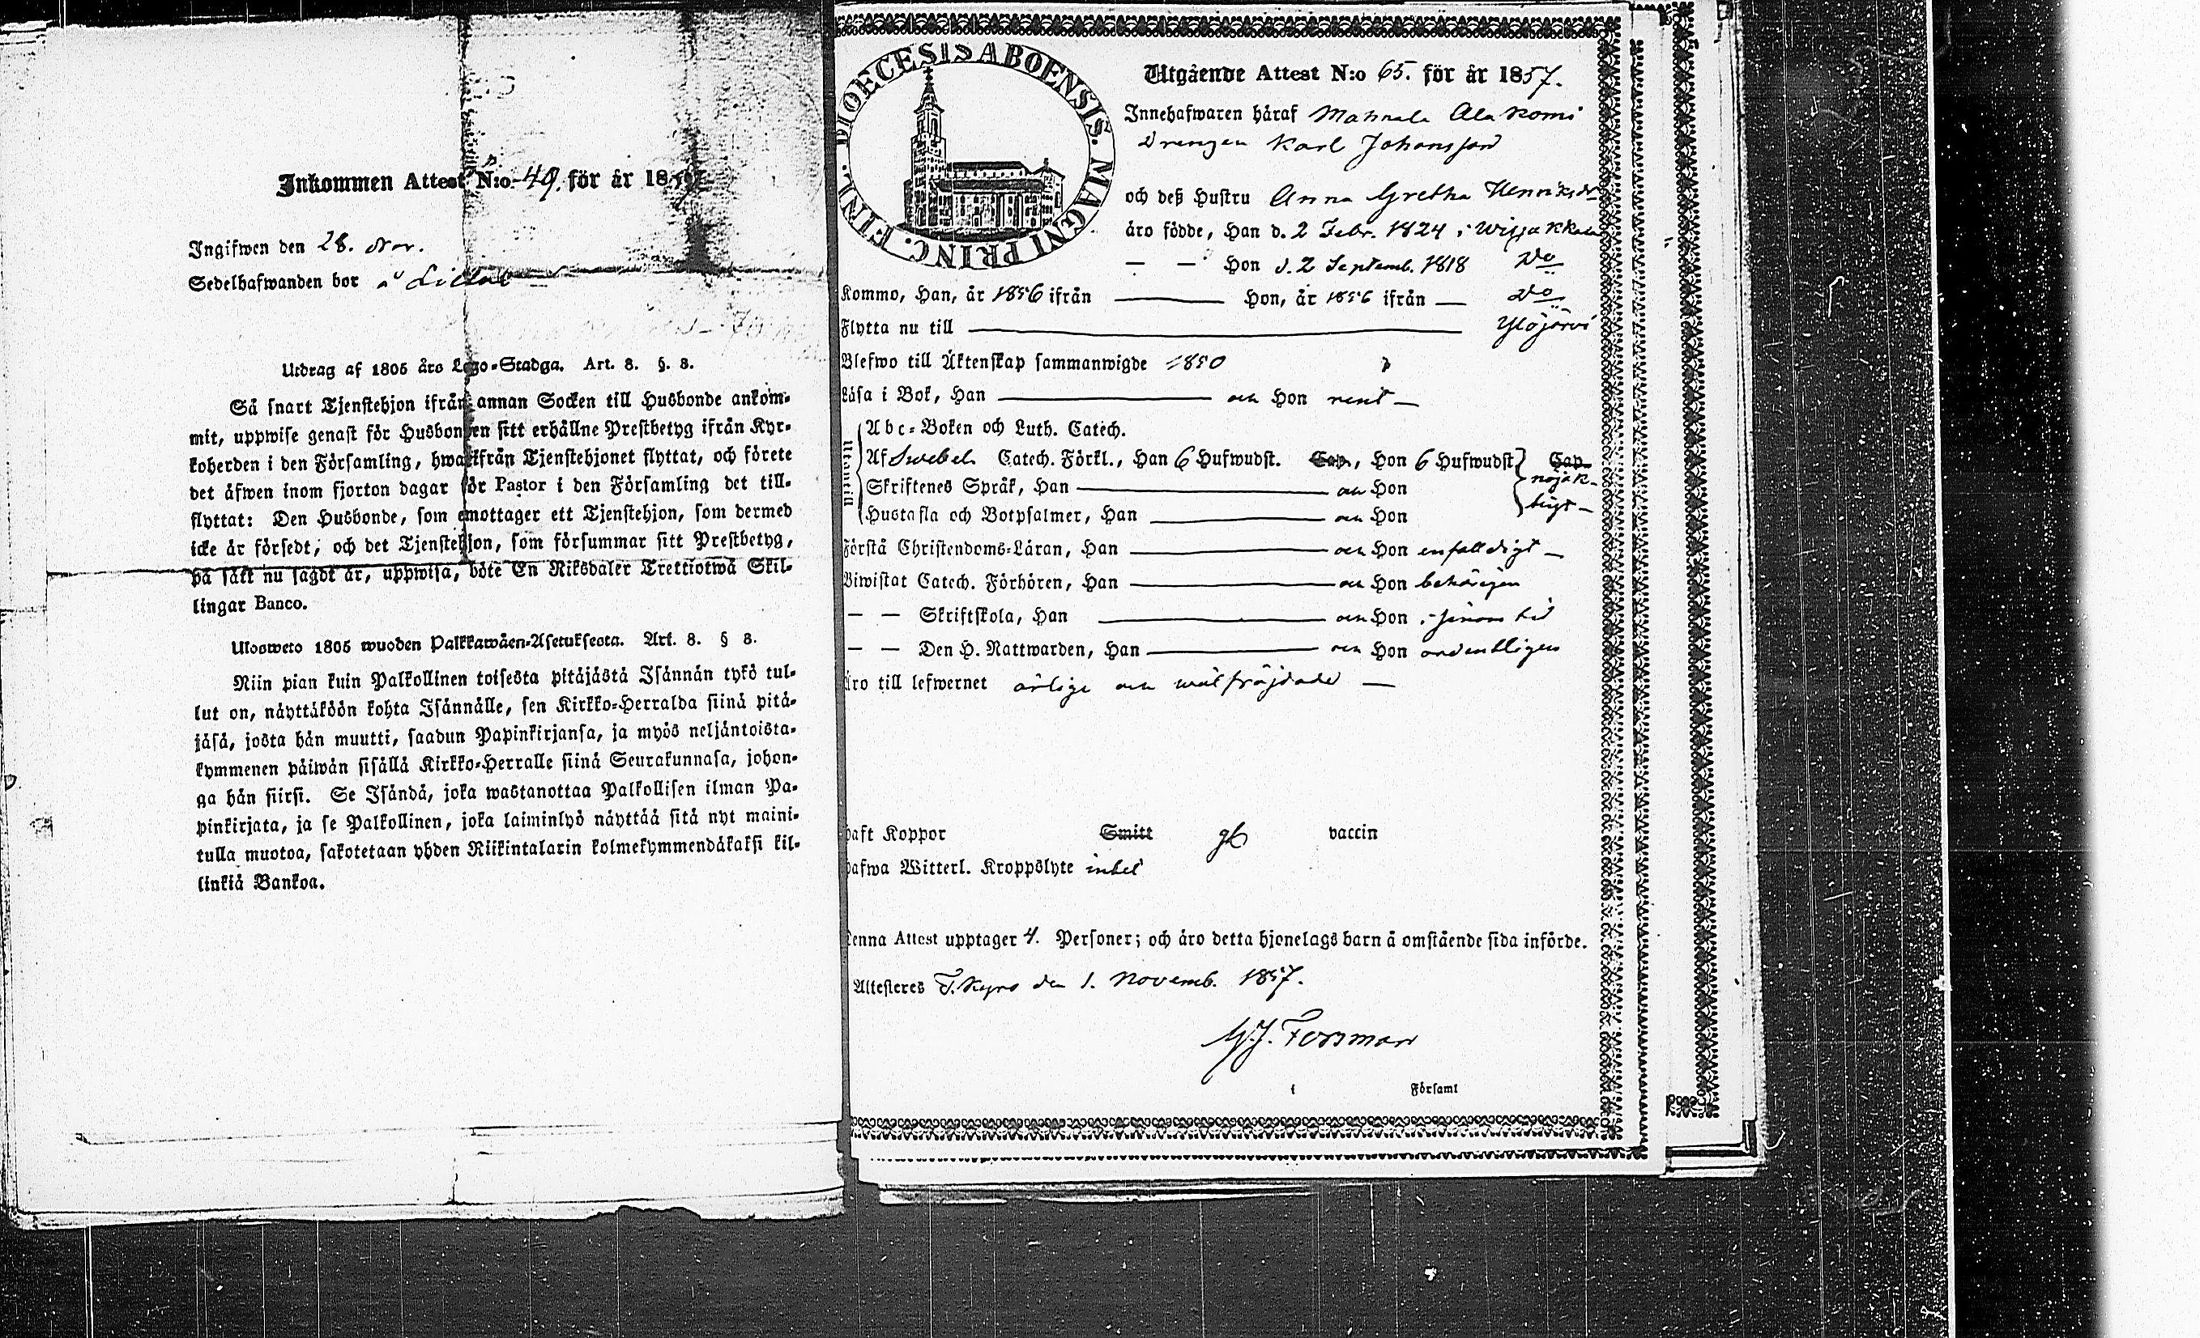 Inkommen Attest N:o 49. för år 1857
Ingifwen den 28. Nov.
Sedelhafwanden bor å
Utdrag af 1805 års Lego-Stadga. Art. 8. §. 8.
Så snart Tjenstehjon ifrån annan Socken till Husbonde ankom-
mit, uppwise genast för Husbonden sitt erhållne Prestbetyg ifrån Kyr-
koherden i den Församling, hwarifrån Tjenstehjonet flyttat, och förete
det äfwen inom fjorton dagar för Pastor i den Församling det till-
flyttat: Den Husbonde, som emottager ett Tjenstehjon, som dermed
icke är försedt, och det Tjenstehjon, som försummar sitt Prestbetyg,
på sätt nu sagdt är, uppwisa, böte En Riksdaler Trettiotwå Skil-
lingar Banco.
Ulosweto 1805 wuoden Palkkawäen-Asetuksesta. Art. 8. § 8.
Niin pian kuin Palkollinen toisesta pitäjästä Isännän tykö tul-
lut on, näyttäköön kohta Isännälle, sen Kirkko-Herralda siinä pitä-
jäsä, josta hän muutti, saadun Papinkirjansa, ja myös neljäntoista-
kymmenen päiwän sisällä Kirkko-Herralle siinä Seurakunnasa, johon-
ga hän siirsi. Se Isändä, joka wastanottaa Palkollisen ilman Pa-
pinkirjata, ja se Palkollinen, joka laiminlyö näyttää sitä nyt maini-
tulla muotoa, sakotetaan yhden Riikintalarin kolmekymmendäkaksi kil-
linkiä Bankoa.
DIOECESIS ABOENSIS. MAGNI PRINC. FINL.
Utgående Attest N:o 65. för år 1857.
Innehafwaren häraf Mahnala Alakomi
Drengen Karl Johansson
och deß Hustru Anna Gretha Henriksdr
äro födde, Han d. 2 Febr. 1824 i Wiljakkala
— — Hon d. 2 Septemb. 1818 Do
Kommo, Han, år 1856 ifrån — Hon, år 1856 ifrån — Do
Flytta nu till — Ylöjärvi
Blefwo till Äktenskap sammanwigde 1850
Läsa i Bok, Han — och Hon rent —
Utantill
Abc-Boken och Luth. Catech.
Af Swebel. Catech. Förkl., Han 6 Hufwudst. Cap., Hon 6 Hufwudst. Cap.
Skriftenes Språk, Han — och Hon nöjak-
Hustafla och Botpsalmer, Han — och Hon tigt —
Förstå Christendoms-Läran, Han — och Hon enfaldigt —
Biwistat Catech. Förhören, Han — och Hon behörigen
— — Skriftskola, Han — och Hon i sinom tid
— — Den H. Nattwarden, Han — och Hon ordentligen
äro till lefwernet ärlige och wälfräjdade —
haft Koppor Smitt vaccin
hafwa Witterl. Kroppslyte intet
Denna Attest upptager 4. Personer; och äro detta hjonelags barn å omstående sida införde.
Attesteres T. Kyro den 1. Novemb. 1857.
G.J. Forsman
i Församl